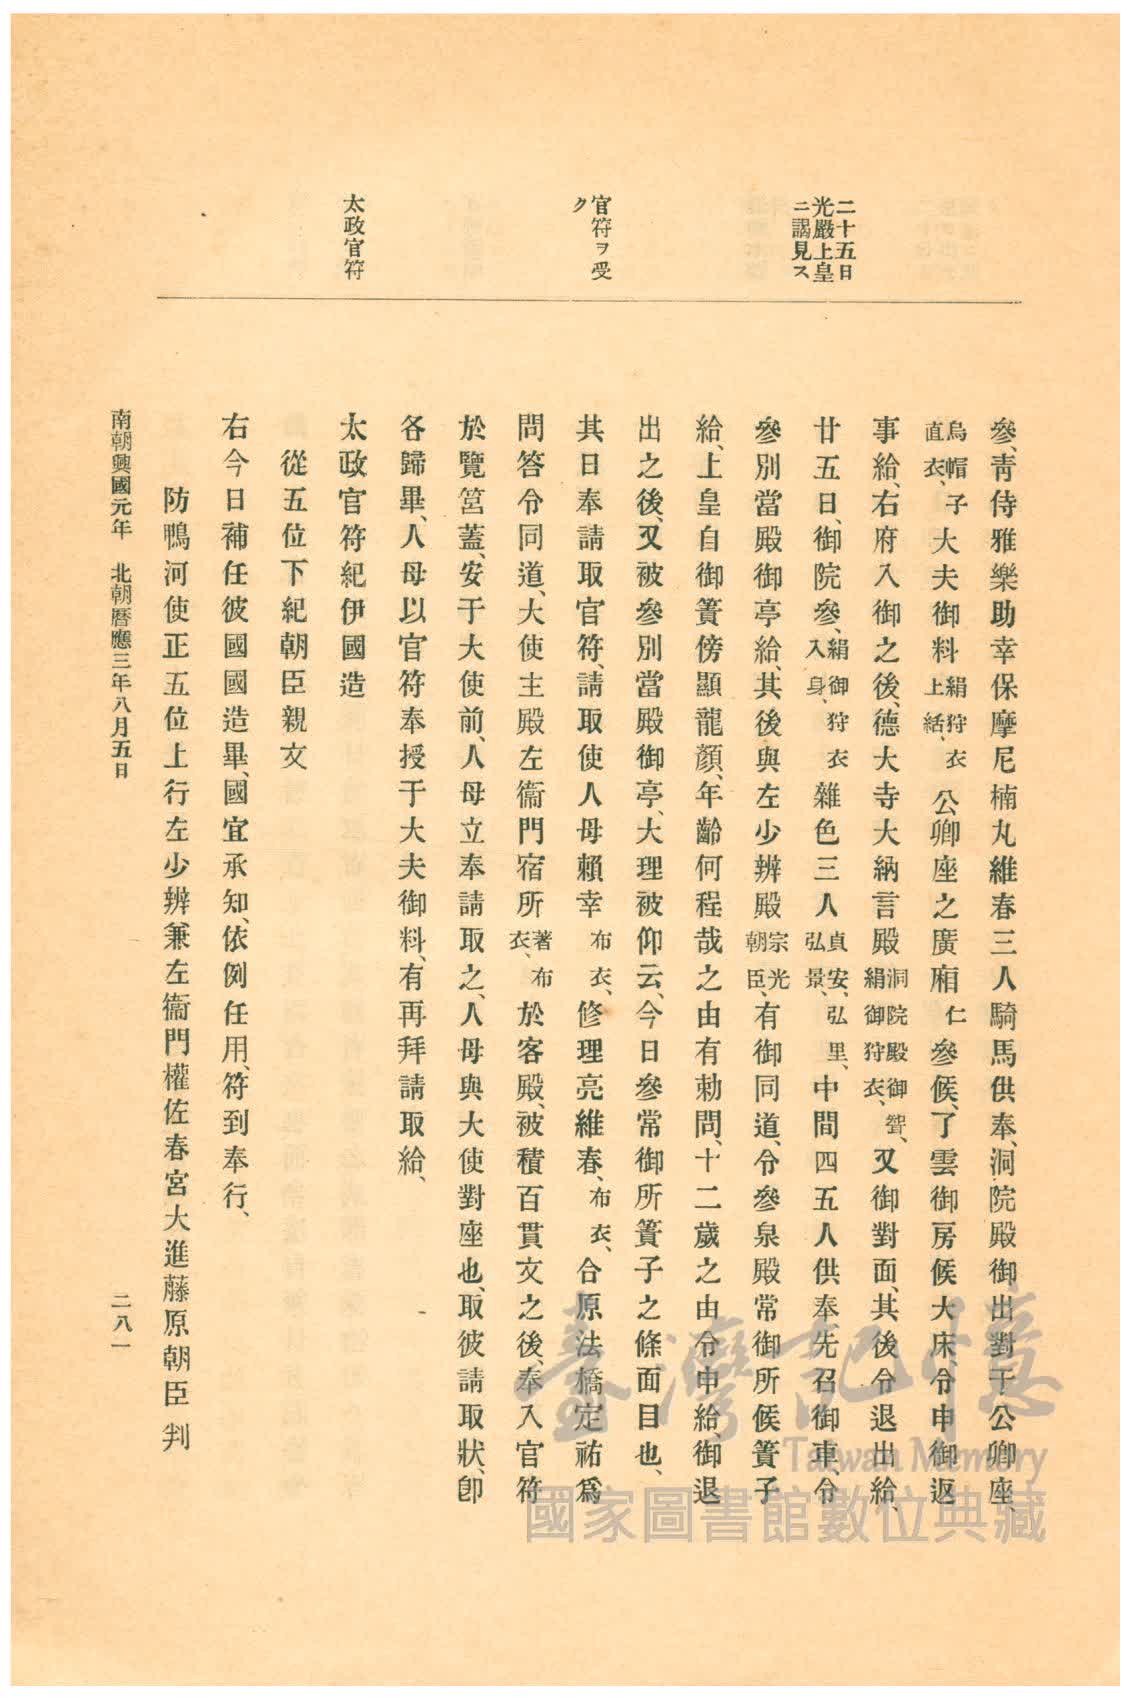 二十五日
光嚴上皇
ニ謁見ス
官符ヲ受
ク
太政官符
參、靑侍雅樂助幸保摩尼楠丸維春三人騎馬供奉、洞院殿御出對于公卿座、
烏帽子直衣、大夫御料絹狩衣上結、公卿座之廣廂仁參候、了雲御房候大床、令申御返
事給、右府入御之後、德大寺大納言殿洞院殿御聟、絹御狩衣、又御對面、其後令退出給、
廿五日、御院參、絹御狩衣入身、雜色三人貞安、弘里、弘景、中間四五人供奉、先召御車、令
參別當殿御亭給、其後與左少辨殿宗光朝臣、有御同道、令參泉殿常御所候簀子
給、上皇自御簀傍顯龍顏、年齡何程哉之由有勅問、十二歲之由令申給、御退
出之後、又被參別當殿御亭、大理被仰云、今日參常御所簀子之條面目也、
其日奉請取官符、請取使人母賴幸布衣、修理亮維春、布衣、合原法橋定祐爲
問答令同道、大使主殿左衞門宿所著布衣、於客殿、被積百貫文之後、奉入官符
於覽筥蓋、安于大使前、人母立奉請取之、人母與大使對座也、取彼請取狀、卽
各歸畢、人母以官符奉授于大夫御料、有再拜請取給、
太政官符紀伊國造
從五位下紀朝臣親文
右今日補任彼國國造畢、國宜承知、依例任用、符到奉行、
防鴨河使正五位上行左少辨兼左衞門權佐春宮大進藤原朝臣判
南朝興國元年　北朝曆應三年八月五日
二八一
臺灣記憶
Taiwan Memory
國家圖書館數位典藏